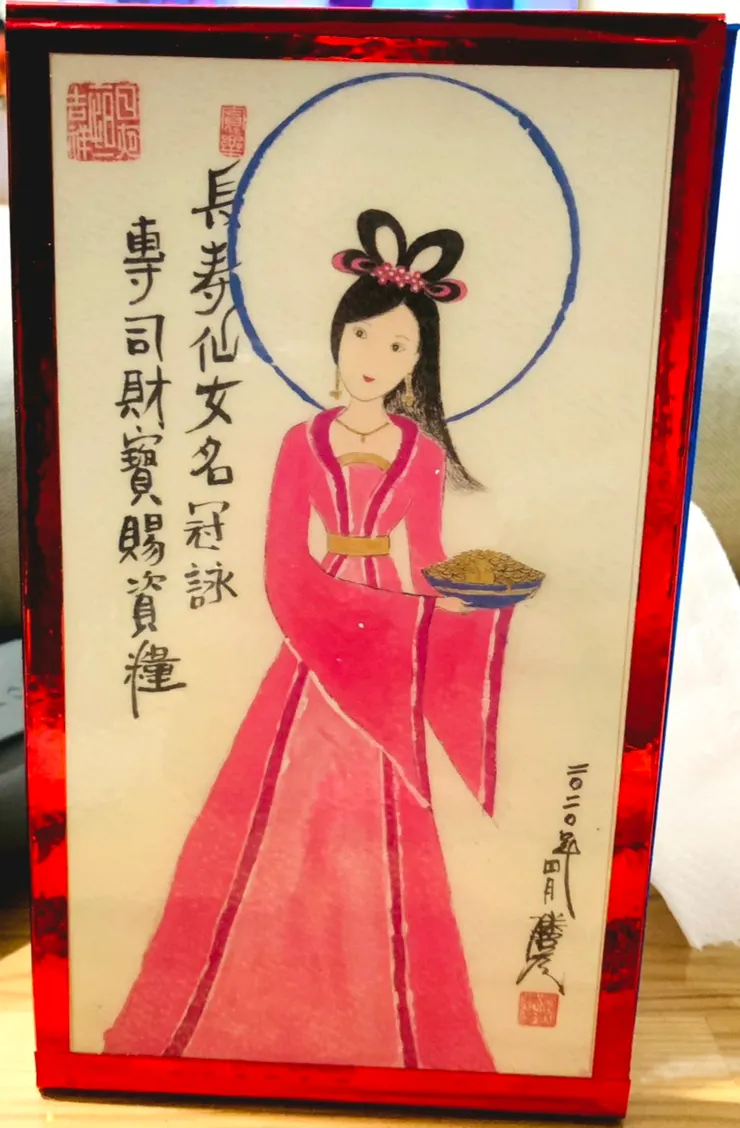 長壽仙女名冠詠
專司財寶賜資糧
二〇二〇年四月
吉祥